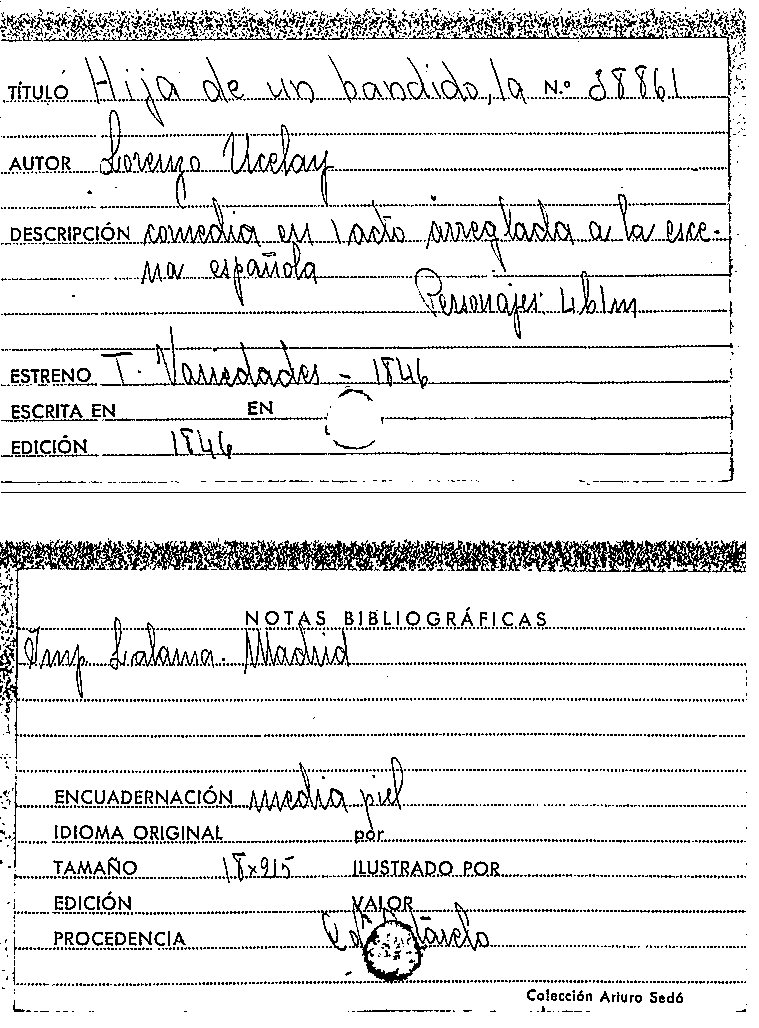 TÍTULO Hija de un bandido, la N.º 38861
AUTOR Lorenzo Ucelay
DESCRIPCIÓN comedia en 1 acto arreglada a la esce-
na española
Personajes: 4h 1m
ESTRENO T. Variedades - 1846
ESCRITA EN EN
EDICIÓN 1846
NOTAS BIBLIOGRÁFICAS
Imp. Lalama. Madrid
ENCUADERNACIÓN media piel
IDIOMA ORIGINAL por
TAMAÑO 18x9'5 ILUSTRADO POR
EDICIÓN VALOR
PROCEDENCIA
Colección Arturo Sedó